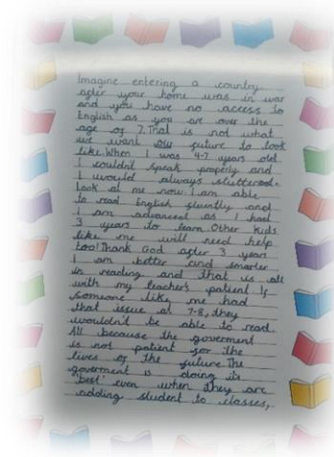 Imagine entering a country
after your home was in war
and you have no access to
English as you are over the
age of 7. That is not what
we want our future to look
like. When I was 4-7 years old
I couldn't speak properly and
I would always stuttered.
Look at me now. I am able
to read English fluently and
I am advanced as I had
3 years to learn. Other kids
like me will need help
too! Thank God after 3 years
I am better and smarter
in reading and that is all
with my teacher's patient If
someone like me had
that issue at 7-8, they
wouldn't be able to read.
All because the goverment
is not patient for the
lives of the future The
goverment is doing its
'best' even when they are
adding student to classes,